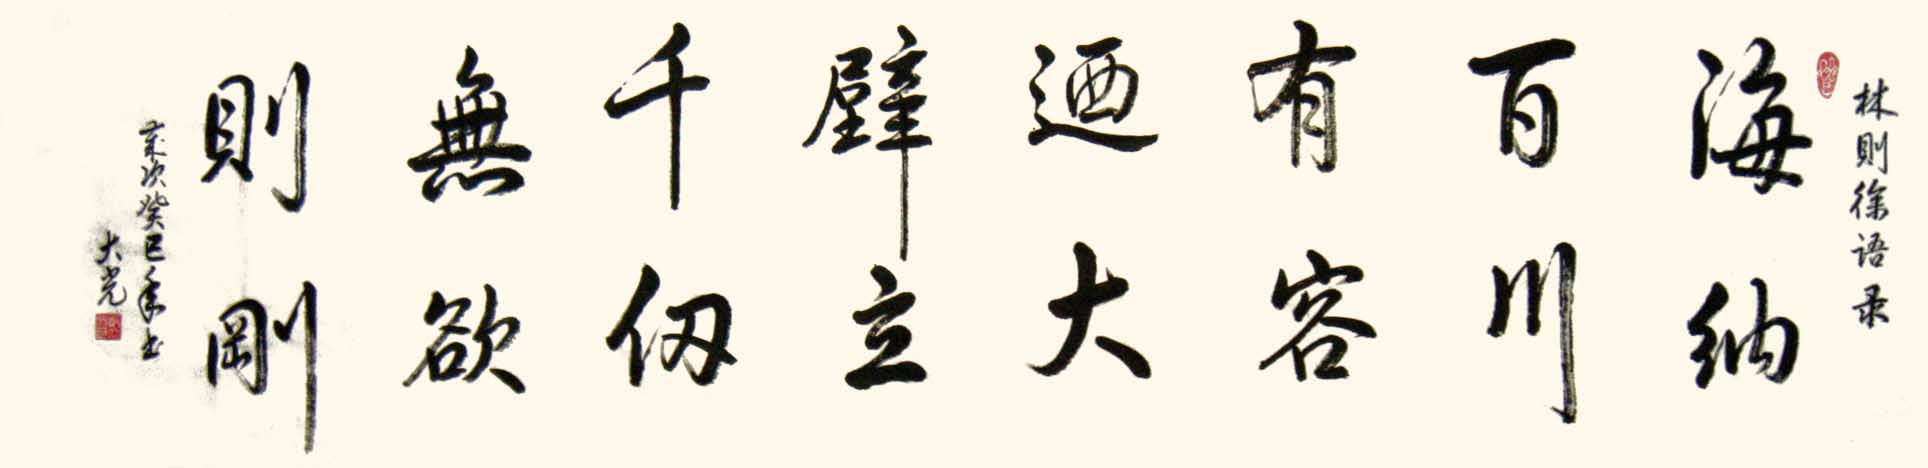 林則徐语录
海納
百川
有容
迺大
壁立
千仞
無欲
則剛
歲次癸巳年书
大光